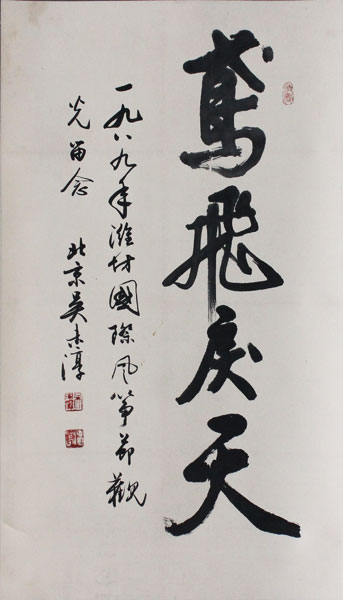 鸢飛戾天
一九八九年潍坊國際风筝節觀
光留念
北京吴未淳